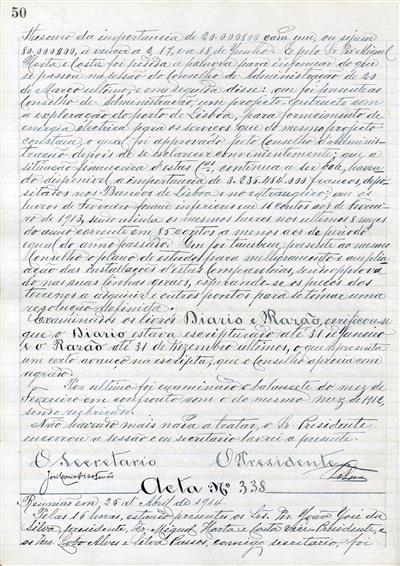 50
Thesouro da importancia de 20.000$00 cada um, ou sejam
80.000$00, a vencer a 3, 17, e a 18 de Junho. E pelo Sr. Dr. Miguel
Horta e Costa foi pedida a palavra para informar do que
se passou na sessão do Conselho de Administração de 20
de Março ultimo, e em seguida disse: que foi presente ao
Conselho de Administração um projecto contracto com
a exploração do porto de Lisboa, para fornecimento de
energia electrica para os serviços que do mesmo projecto
constava, o qual foi approvado pelo Conselho d'Adminis-
tração depois de se esclarecer convenientemente; que a
situação financeira d'estas Cas, continua a ser boa, haven-
do disponivel a importancia de 3.236.284.000 francos, depo-
sitados nos Bancos de Lisboa e no extrangeiro; que os
lucros de Fevereiro foram inferiores em 14 contos aos de Feverei-
ro de 1913, sendo ainda os mesmos lucros nos ultimos 8 mezes
do anno corrente em 15 contos a menos aos do periodo
egual do anno passado. Que foi tambem presente ao mesmo
Conselho o plano de estudos para melhoramento e ampli-
ação das installações d'estas Companhias, sendo approva-
do nas suas linhas geraes, esperando-se os preços dos
terrenos a adquirir e outros pontos para se tomar uma
resolução definitiva.
Examinados os livros Diario e Razão, verificou-se
que o Diario estava escripturado até 31 de Janeiro
e o Razão até 31 de Dezembro ultimos, o que representa
um certo avanço na escripta, que o Conselho aprecia com
agrado.
Por ultimo foi examinado o balancete do mez de
Fevereiro em confronto com o do mesmo mez de 1913,
sendo rubricado.
Não havendo mais nada a tratar, o Sr. Presidente
encerrou a sessão eu secretario lavrei a presente.
O Secretario O Presidente
Acta Nº 338
Reunião em 25 d'Abril de 1914
Pelas 15 horas, estando presentes os Srs. Dr. João José da
Silva, presidente, Dr. Miguel Horta e Costa vice-Presidente, e
os Srs. Castro Alves e Silva Passos, comigo secretario foi